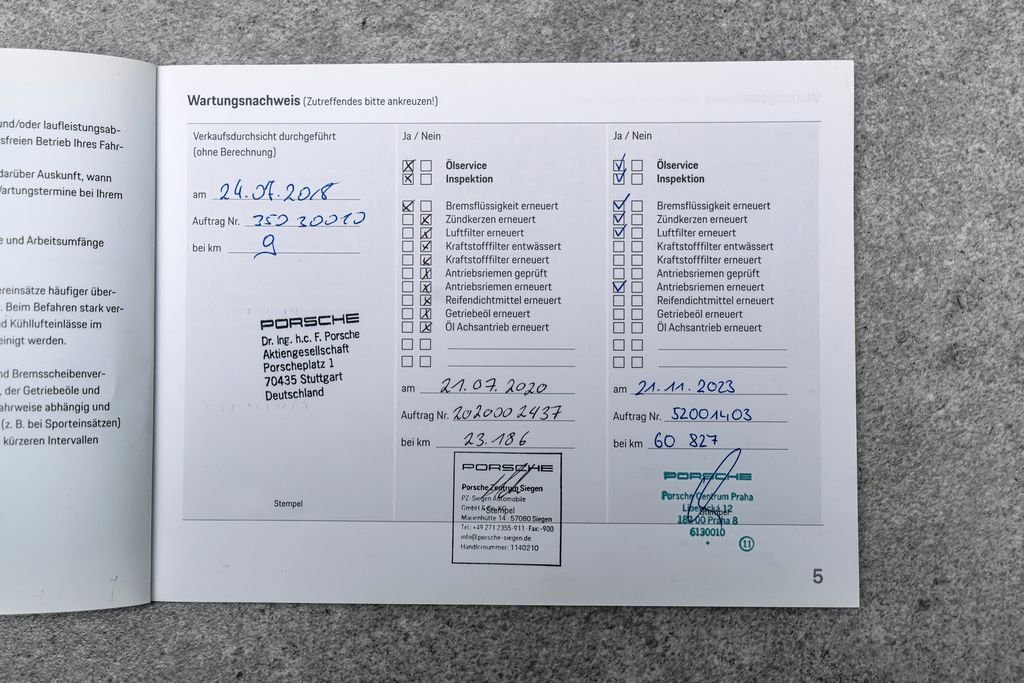 und/oder laufleistungsab-
sfreien Betrieb Ihres Fahr-
darüber Auskunft, wann
Wartungstermine bei Ihrem
e und Arbeitsumfänge
ereinsätze häufiger über-
. Beim Befahren stark ver-
d Kühllufteinlässe im
einigt werden.
nd Bremsscheibenver-
, der Getriebeöle und
ahrweise abhängig und
(z. B. bei Sporteinsätzen)
kürzeren Intervallen
Wartungsnachweis (Zutreffendes bitte ankreuzen!)
Verkaufsdurchsicht durchgeführt
(ohne Berechnung)
am 24.07.2018
Auftrag Nr. 35030010
bei km 9
PORSCHE
Dr. Ing. h.c. F. Porsche
Aktiengesellschaft
Porscheplatz 1
70435 Stuttgart
Deutschland
Stempel
Ja / Nein
Ölservice
Inspektion
Bremsflüssigkeit erneuert
Zündkerzen erneuert
Luftfilter erneuert
Kraftstofffilter entwässert
Kraftstofffilter erneuert
Antriebsriemen geprüft
Antriebsriemen erneuert
Reifendichtmittel erneuert
Getriebeöl erneuert
Öl Achsantrieb erneuert
am 21.07.2020
Auftrag Nr. 2020002437
bei km 23.186
PORSCHE
Porsche Zentrum Siegen
PZ-Siegen Automobile
GmbH & Co. KG
Stempel
Marienhütte 14 · 57080 Siegen
Tel.: +49 271 2355-911 · Fax: -900
info@porsche-siegen.de
Händlernummer: 1140210
Ja / Nein
Ölservice
Inspektion
Bremsflüssigkeit erneuert
Zündkerzen erneuert
Luftfilter erneuert
Kraftstofffilter entwässert
Kraftstofffilter erneuert
Antriebsriemen geprüft
Antriebsriemen erneuert
Reifendichtmittel erneuert
Getriebeöl erneuert
Öl Achsantrieb erneuert
am 21.11.2023
Auftrag Nr. 52001403
bei km 60 827
PORSCHE
Porsche Centrum Praha
Liberecká 12
Stempel
182 00 Praha 8
6130010
11
5